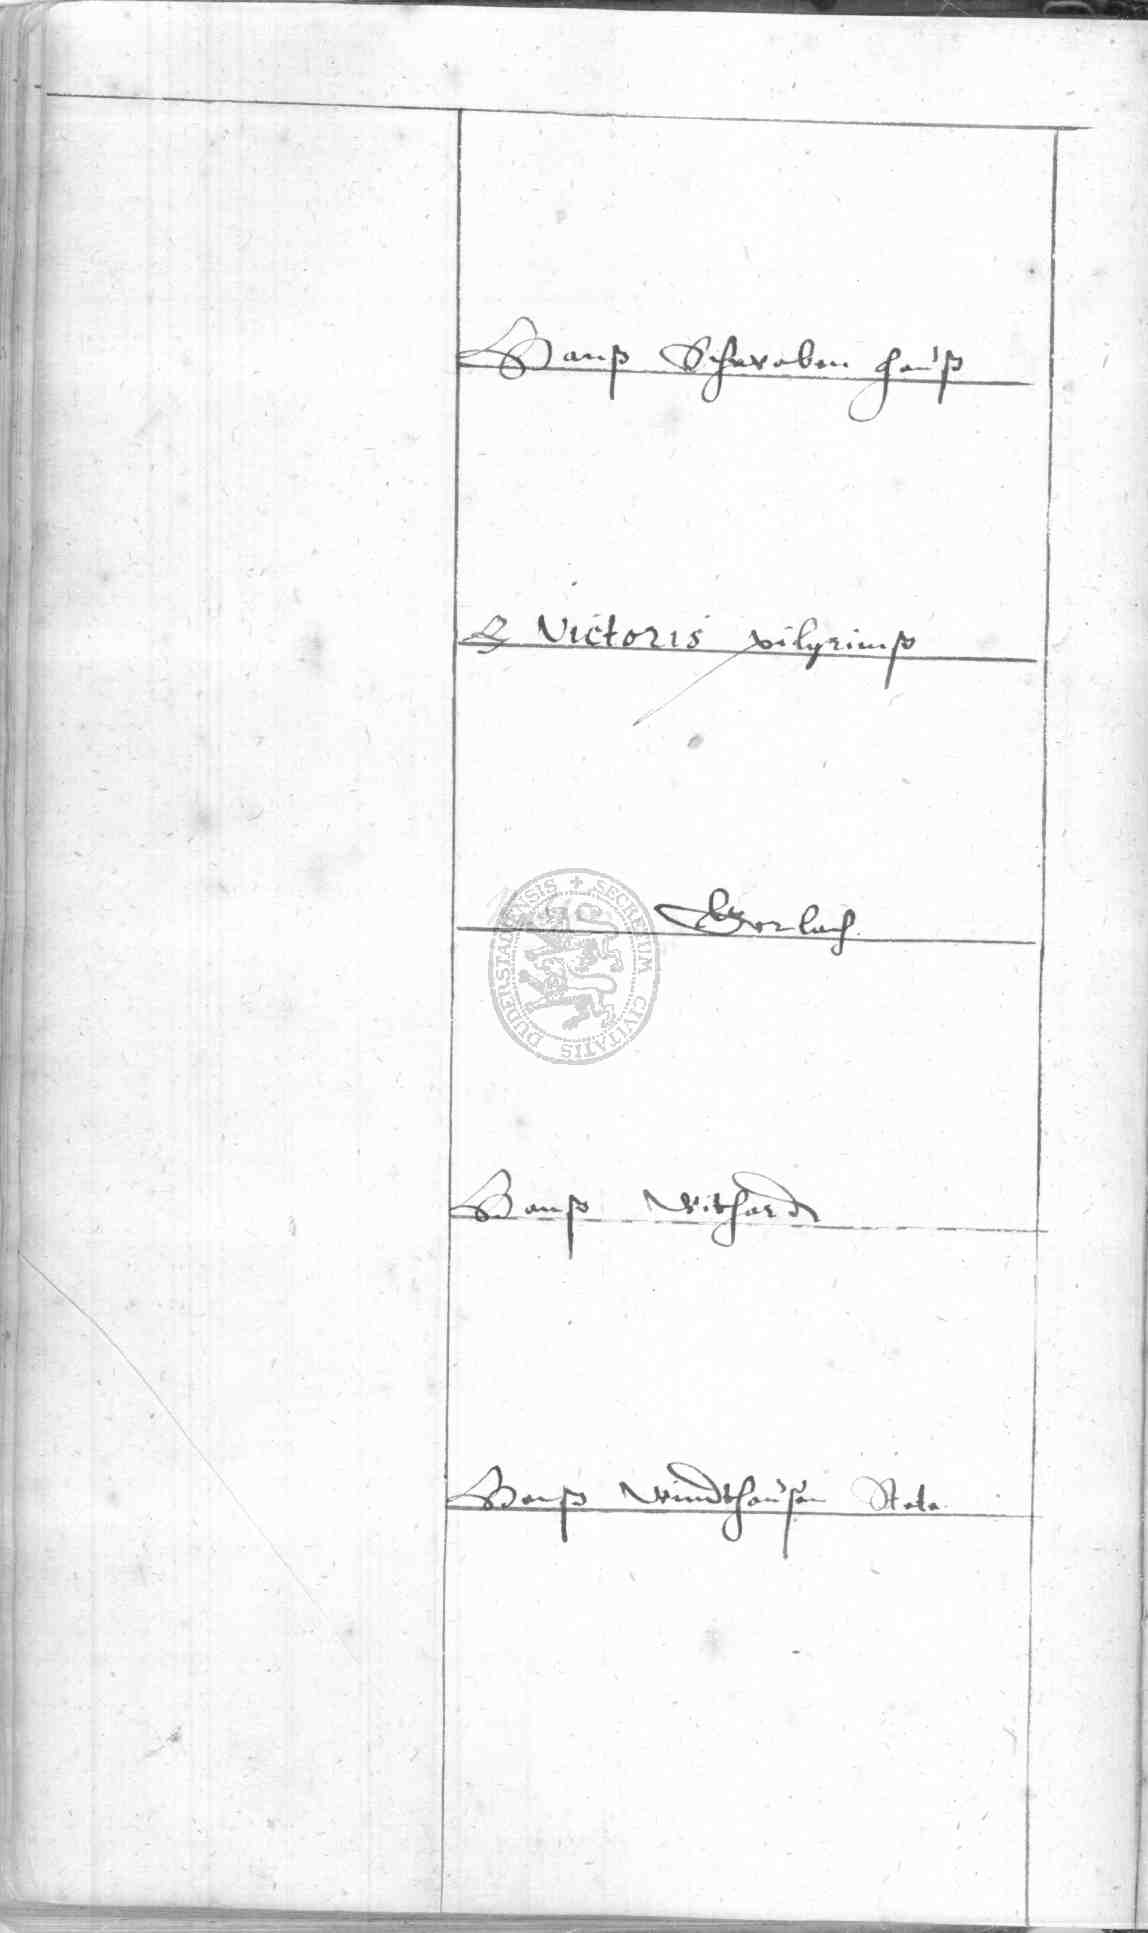 Hanß Schwaben hauß
H Victoris pilgrimß
Gerlach
Hanß Withard
Hanß Windthausen
SECRETUM CIVITATIS DUDERSTADIENSIS